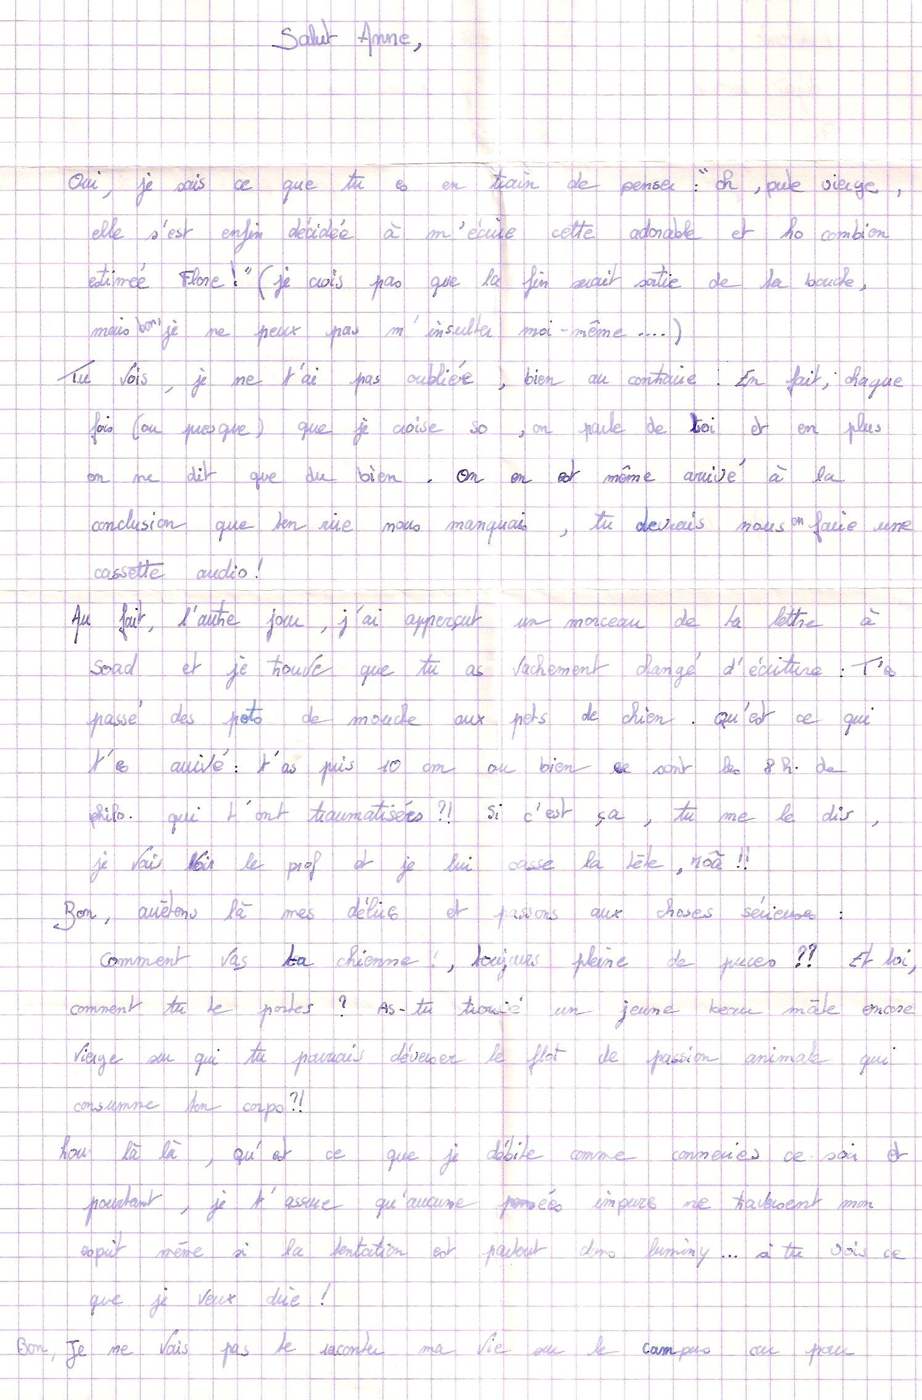 Salut Anne,
Oui, je sais ce que tu es en train de penser : "oh, pute vierge,
elle s'est enfin décidée à m'écrire cette adorable et ho combien
estimée Flore !" (je crois pas que la fin serait sortie de ta bouche,
mais bon je ne peux pas m'insulter moi-même ....)
Tu vois, je ne t'ai pas oubliée, bien au contraire : En fait, chaque
fois (ou presque) que je croise so, on parle de toi et en plus
on ne dit que du bien. On en est même arrivé à la
conclusion que ton rire nous manquais, tu devrais nous en faire une
cassette audio !
Au fait, l'autre jour, j'ai apperçut un morceau de ta lettre à
Soad et je trouve que tu as vachement changé d'écriture : T'es
passé des pets de mouche aux pets de chien. Qu'est ce qui
t'es arrivé : t'as pris 10 cm ou bien ce sont les 8 h. de
philo. qui t'ont traumatisées ?! Si c'est ça, tu me le dis,
je vais voir le prof et je lui casse la tête, nôa !!
Bon, arrêtons là mes délires et passons aux choses sérieuses :
Comment vas ta chienne !, toujours pleine de puces ?? Et toi,
comment tu te portes ? As-tu trouvé un jeune beau mâle encore
vierge sur qui tu pourrais déverser le flot de passion animale qui
consumme ton corps ?!
hou là là, qu'est ce que je débite comme conneries ce soir et
pourtant, je t'assure qu'aucune pensées impures ne traversent mon
esprit même si la tentation est partout dns luminy ... si tu vois ce
que je veux dire !
Bon, Je ne vais pas te raconter ma vie sur le campus ou pour